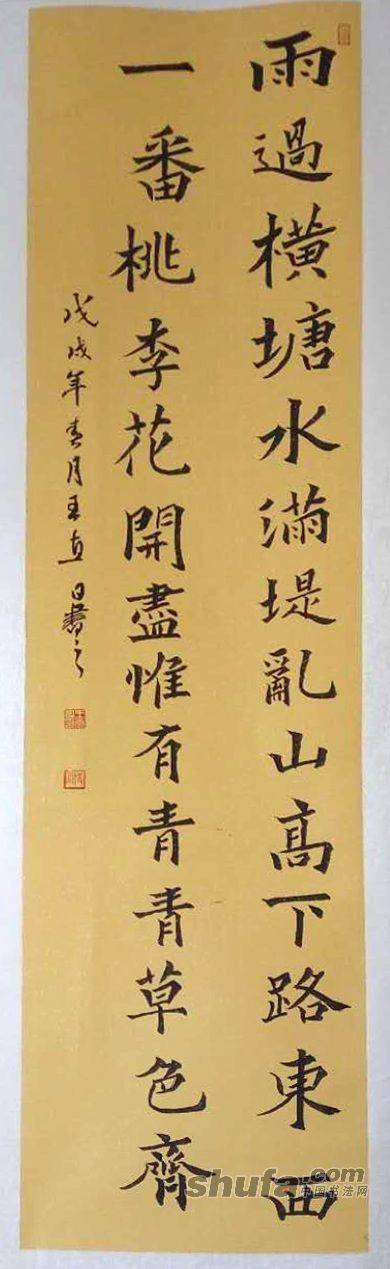 雨過橫塘水滿堤亂山高下路東西
一番桃李花開盡惟有青青草色齊
戊戌年春月王直日書之
shufa.com
中国书法网